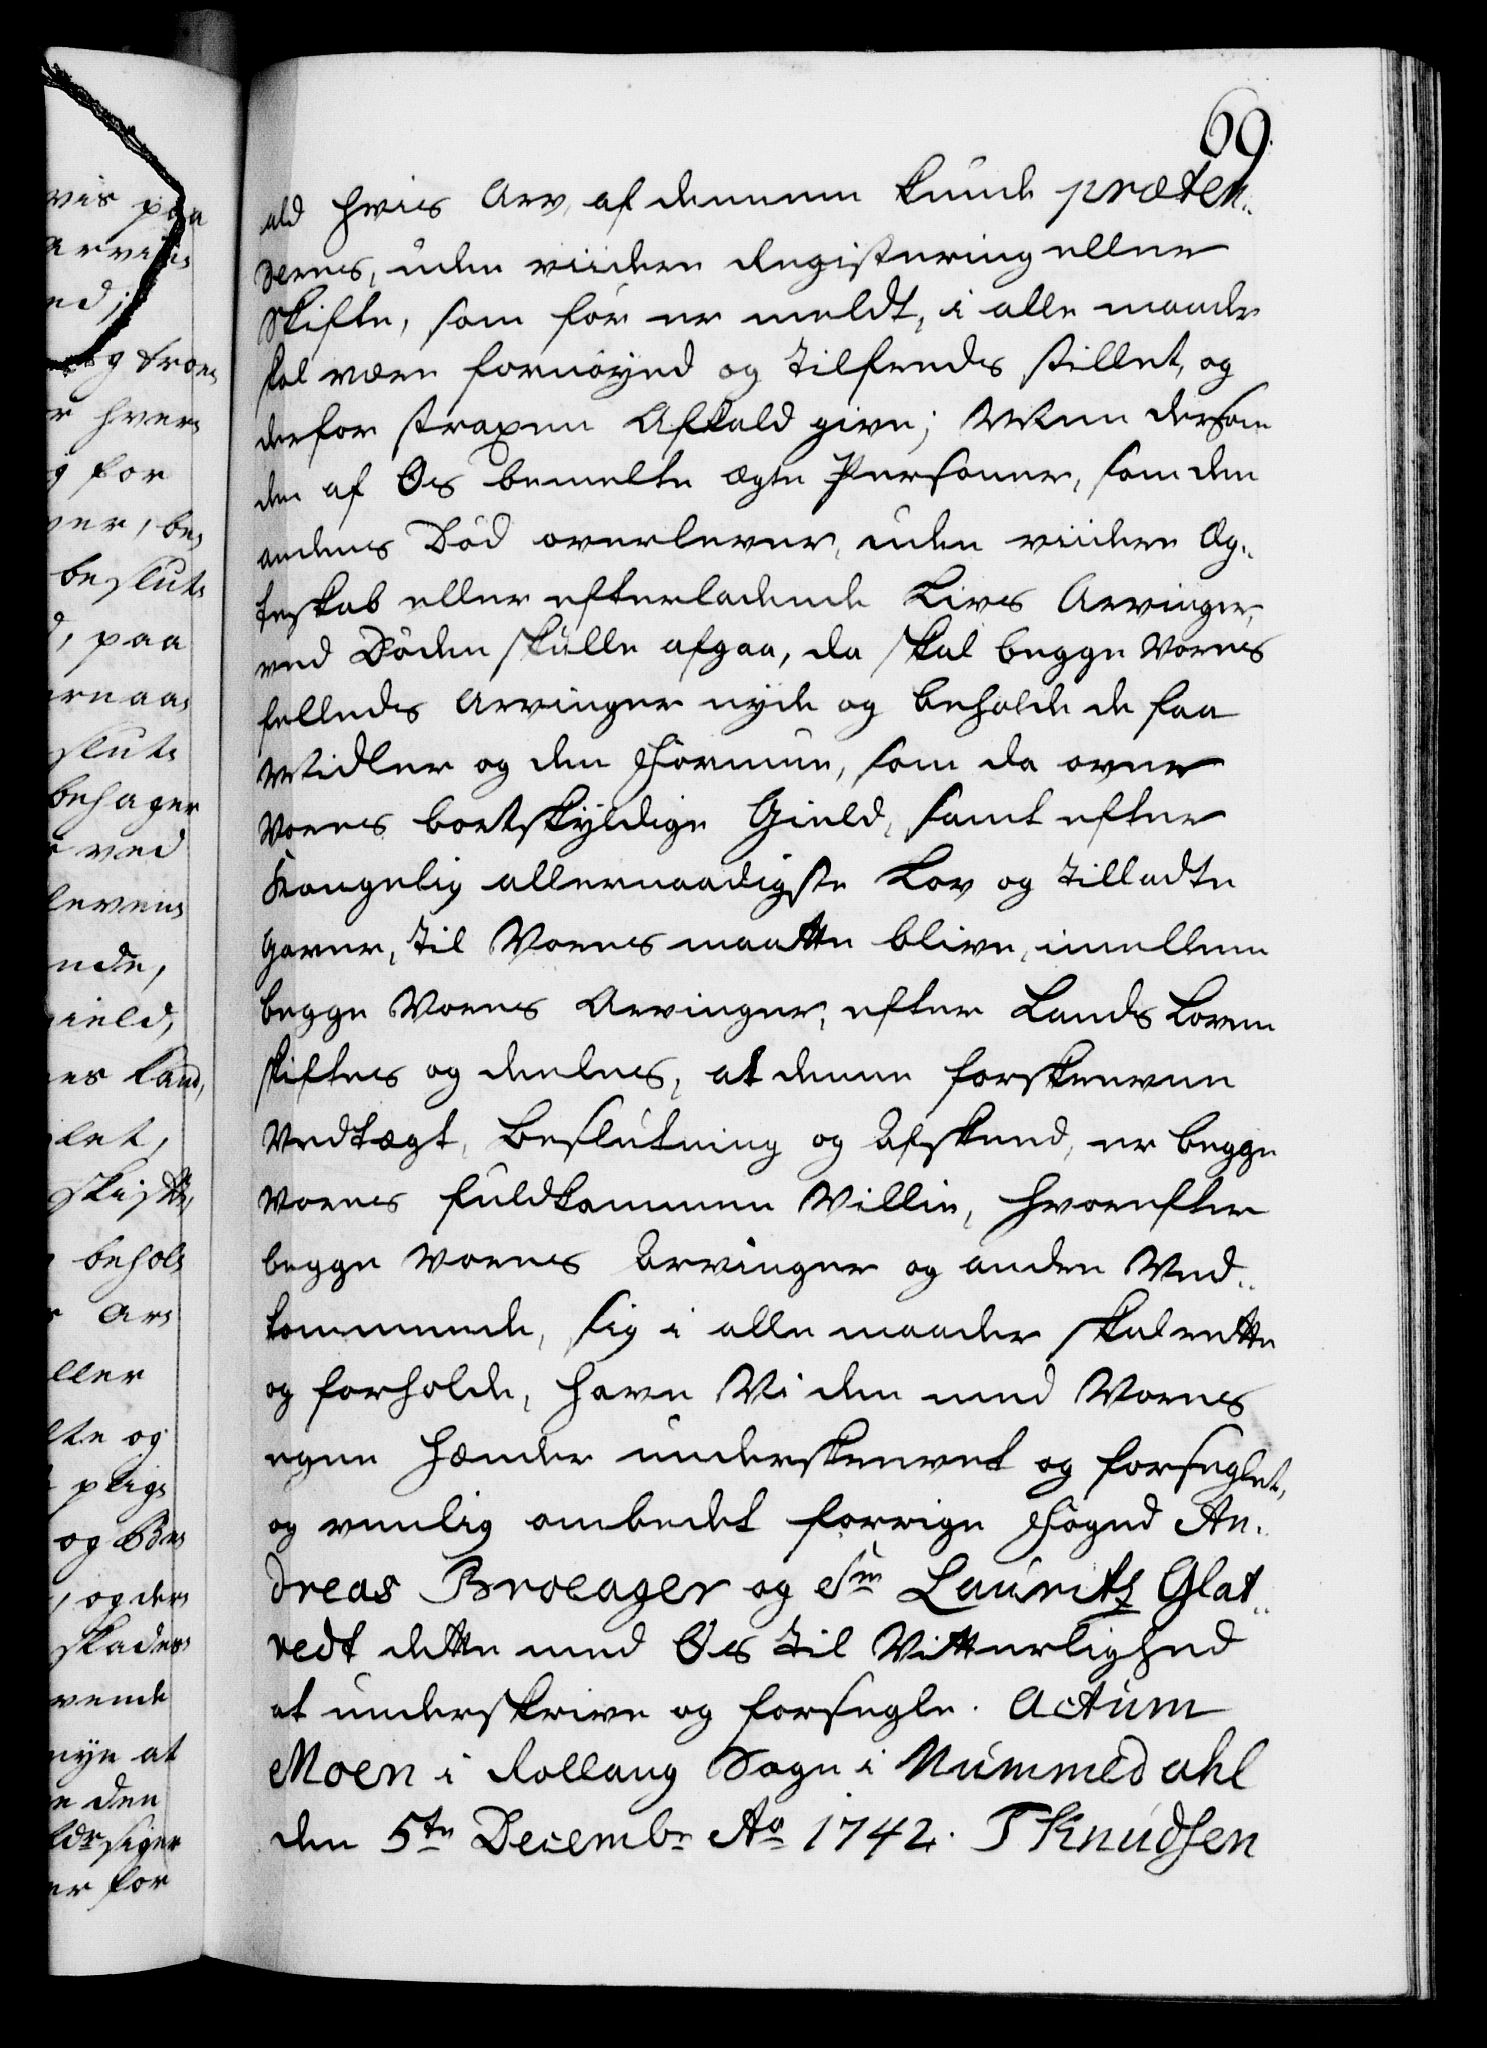 69.
ald hvis Arv, af dennem kunde præten-
deres, uden viidere Registering eller
Skifte, som før er meldt, i alle maader
skal være fornøyed og tilfreds stillet, og
derfor straxen Afkald give; Men dersom
den af Os bemelte Ægte Personer, som den
andens Død overlever, uden viidere Æg-
teskab eller efterladende Livs Arvinger,
ved Døden skulle afgaa, da skal begge Vores
felleds Arvinger nyde og beholde de faa
Midler og den Formue, som da over
Vores bortskyldige Gield, samt efter
Kongelig allernaadigste Lov og tilladte
Gaver, til Vores maatte blive, imellem
begge Vores Arvinger, efter Lands Loven
skiftes og deeles, at denne forskrevne
Vedtægt, Beslutning og Afskeed, er begge
Vores fuldkommen Villie, hvorefter
begge Vores Arvinger og anden Ved-
kommende, sig i alle maader skal rette
og forholde, have Vi den med Vores
egne Hænder underskrevet og forseglet,
og venlig ombedet forrige Foged An-
dreas Broeager og Sr Lauritz Glat-
vedt dette med Os til Vitterlighed
at underskrive og forsegle. Actum
Moen i Rollaug Sogn i Nummedahl
den 5te Decembr Ao 1742. T Knudsen